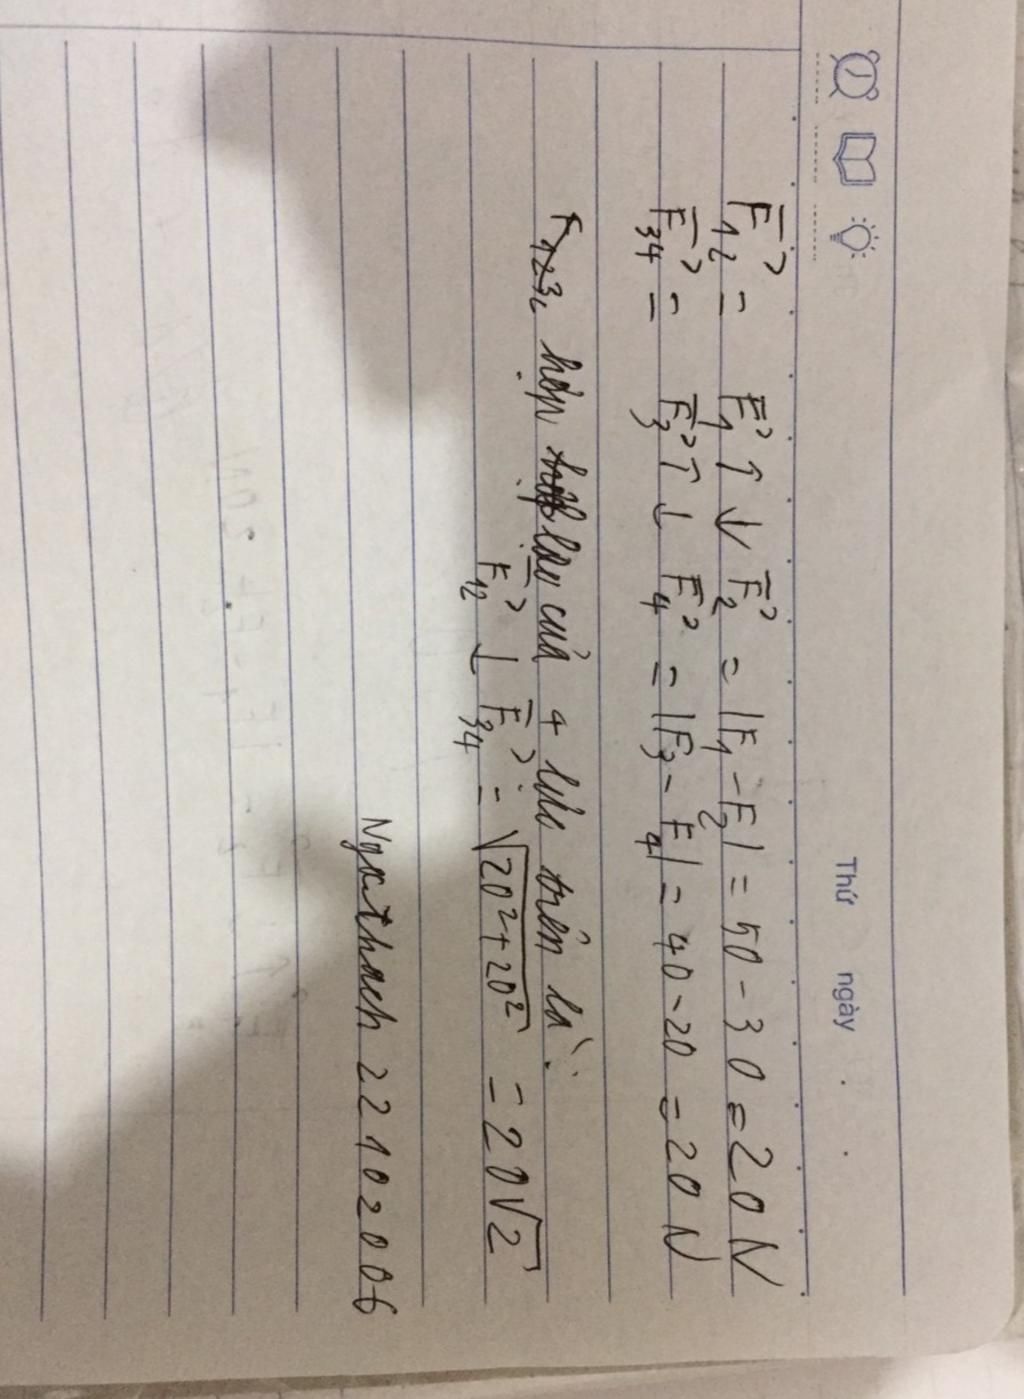 Thứ ngày . .
F⃗12 = F⃗1 ↑↓ F⃗2 = |F1 - F2| = 50 - 30 = 20 N
F⃗34 = F⃗3 ↑↓ F⃗4 = |F3 - F4| = 40 - 20 = 20 N
hợp lực của 4 lực trên là:
F⃗12 ↓ F⃗34 = √20²+20² = 20√2
Ngocthach 22102006